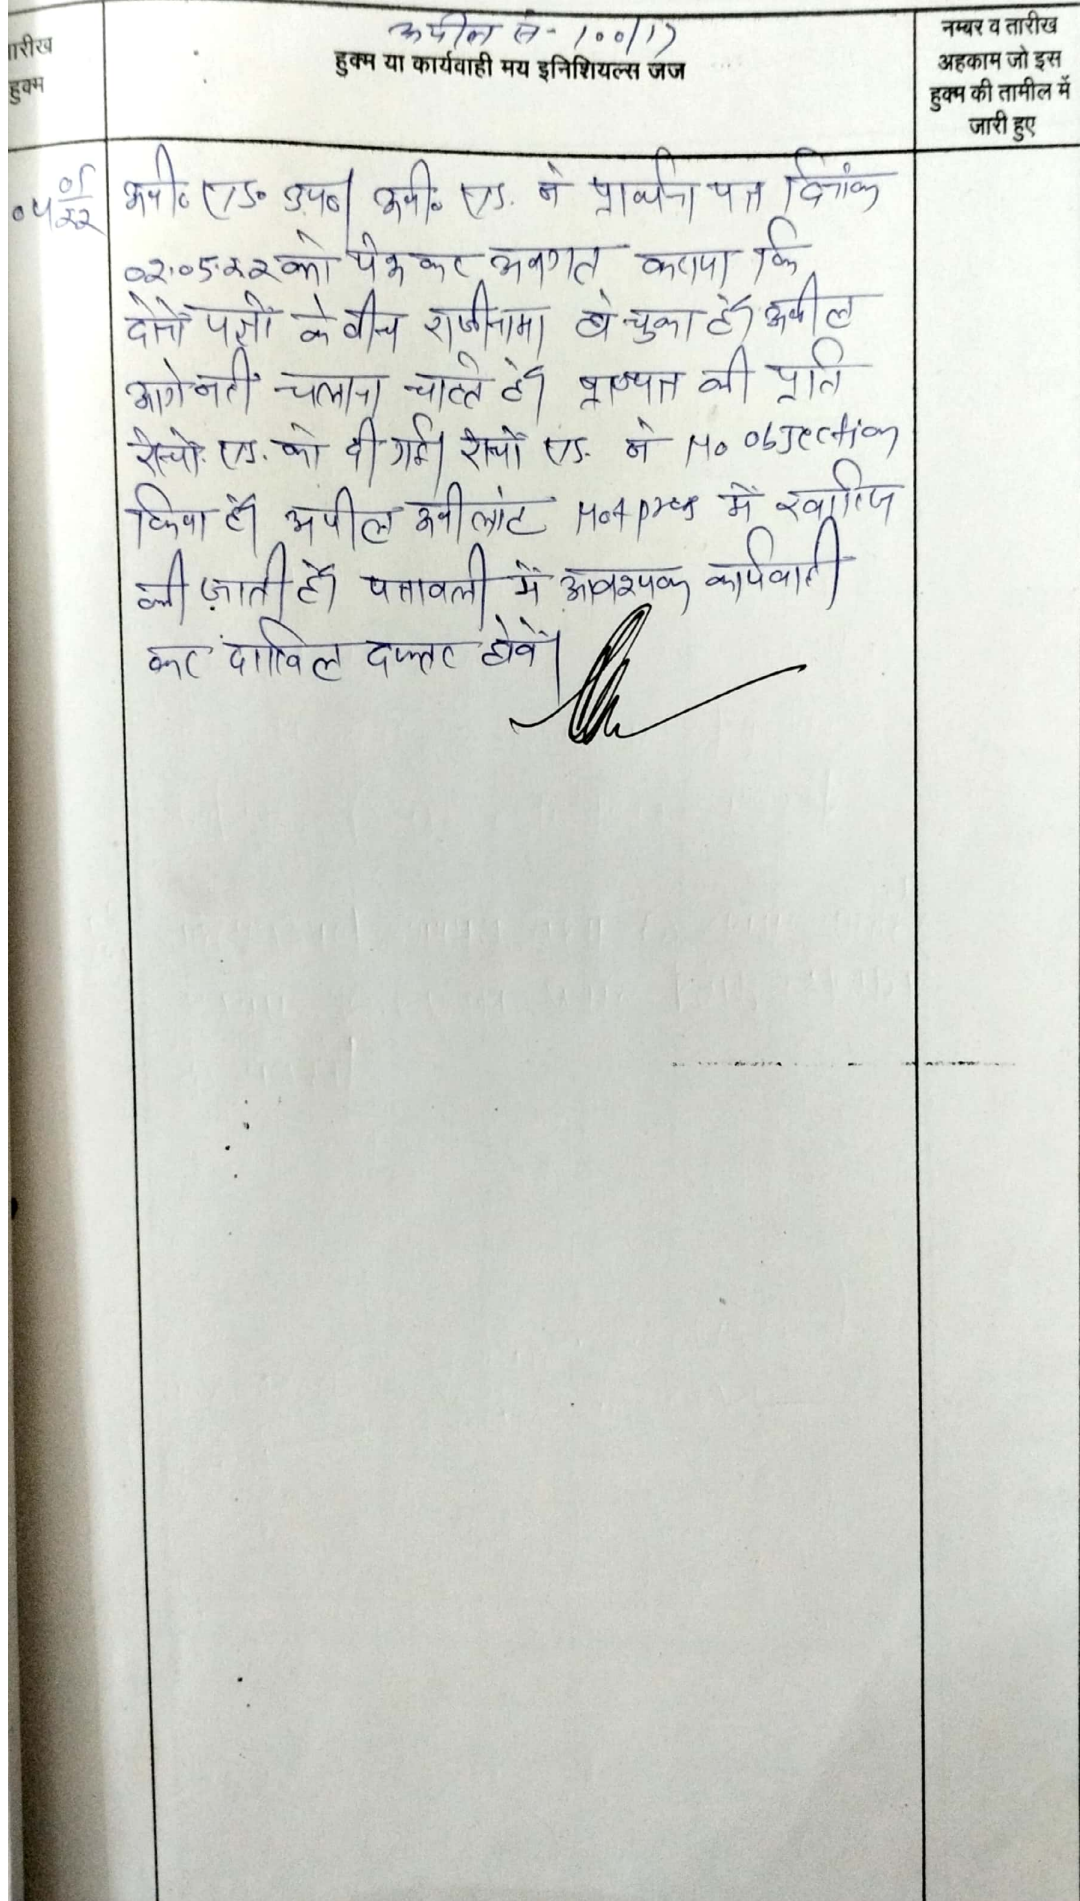 अपील सं- 100/17
तारीख
हुक्म
हुक्म या कार्यवाही मय इनिशियल्स जज
नम्बर व तारीख
अहकाम जो इस
हुक्म की तामील में
जारी हुए
०५
०५/२२
अपी० एड० उप०। अपी० एड. ने प्रार्थना पत्र दिनांक
०२.०५.२२ को पेश कर अवगत कराया कि
दोनों पक्षों के बीच राजीनामा हो चुका है। अपील
आगे नहीं चलाना चाहते है। प्रा०पत्र की प्रति
रेस्पो. एड. को दी गई। रेस्पो एड. ने No objection
किया है। अपील अपीलांट Not press में खारिज
की जाती है। पत्रावली में आवश्यक कार्यवाही
कर दाखिल दफ्तर होवें।